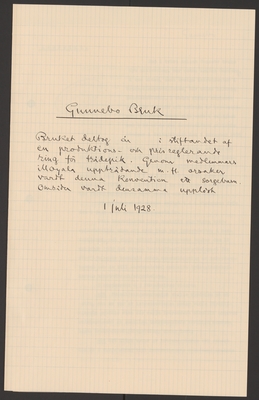 Gunnebo Bruk
Bruket deltog år i stiftandet af
en produktions- och prisreglerande
ring för trådspik. Genom medlemmars
illoyala uppträdande m.fl. orsaker
vardt denna Konvention ett sorgebarn.
Omsider vardt densamma upplöst
1 juli 1928